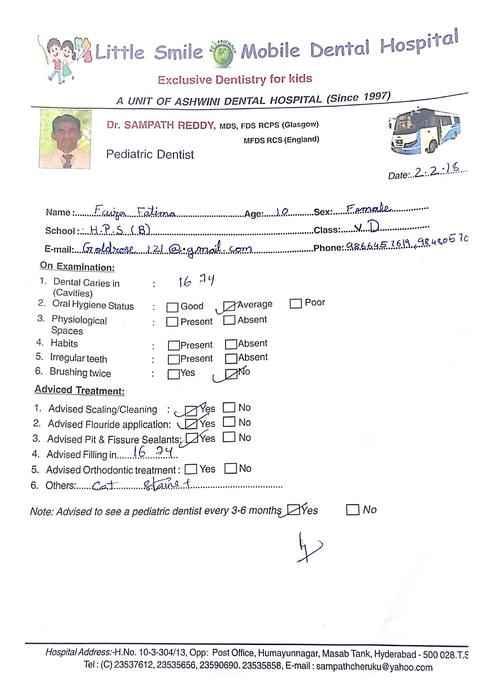 Little Smile Mobile Dental Hospital
Exclusive Dentistry for kids
A UNIT OF ASHWINI DENTAL HOSPITAL (Since 1997)
Dr. SAMPATH REDDY, MDS, FDS RCPS (Glasgow)
MFDS RCS (England)
Pediatric Dentist
Date: 2.2.18
Name: Faiza Fatima Age: 10 Sex: Female
School: H.P.S (B) Class: V D
E-mail: Goldrose 121@gmail.com Phone:
On Examination:
1. Dental Caries in (Cavities) : 16 74
2. Oral Hygiene Status : Good Average Poor
3. Physiological Spaces : Present Absent
4. Habits : Present Absent
5. Irregular teeth : Present Absent
6. Brushing twice : Yes No
Adviced Treatment:
1. Advised Scaling/Cleaning : Yes No
2. Advised Flouride application: Yes No
3. Advised Pit & Fissure Sealants: Yes No
4. Advised Filling in 16 74
5. Advised Orthodontic treatment : Yes No
6. Others:
Note: Advised to see a pediatric dentist every 3-6 months Yes No
Hospital Address:-H.No. 10-3-304/13, Opp: Post Office, Humayunnagar, Masab Tank, Hyderabad - 500 028.T.S
Tel : (C) 23537612, 23535656, 23590690. 23535858, E-mail : sampathcheruku@yahoo.com